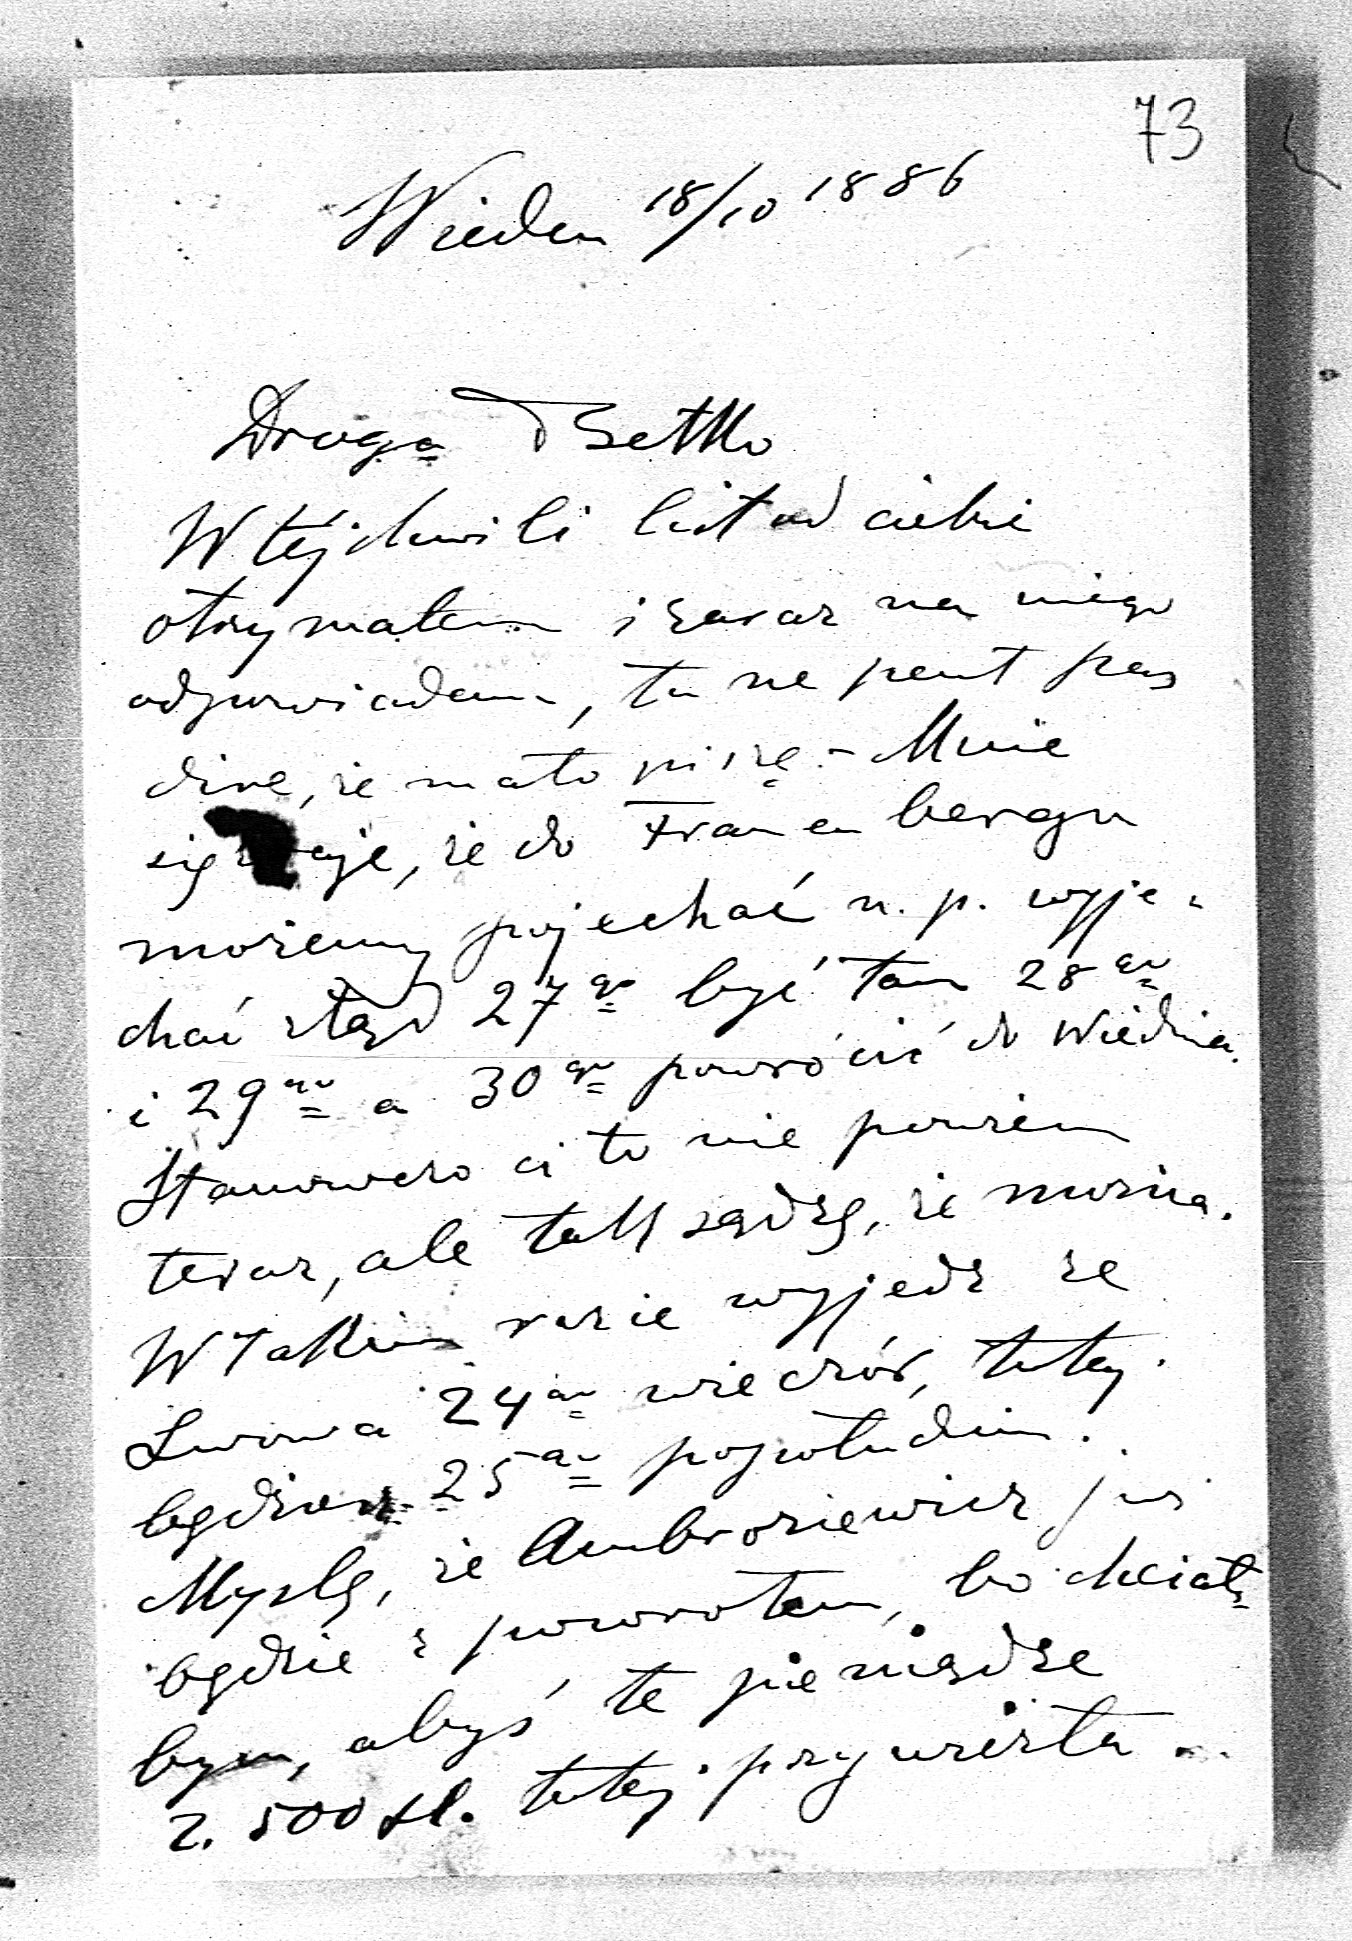 73
Wieden 18/10 1886
Droga Betko
W téj chwili list od ciebie
otrymałem i zaraz na niego
odpowiadam, tu ne peut pas
dire, że mało piszę. – Mnie
się zdaje, że do Frauenbergu
możemy pojechać n. p. wyje-
chać ztąd 27go być tam 28go
i 29go a 30go powrócić do Wiednia.
Stanowczo ci to nie powiem
teraz, ale tak sądzę, że można.
W takim razie wyjedź ze
Lwowa 24go wieczór, tutej
będziesz 25go popołudniu.
Myślę, że Ambroziewicz już
będzie z powrotem, bo chciał-
bym, abyś te pieniądze
2.500 fl. tutej przywiozła